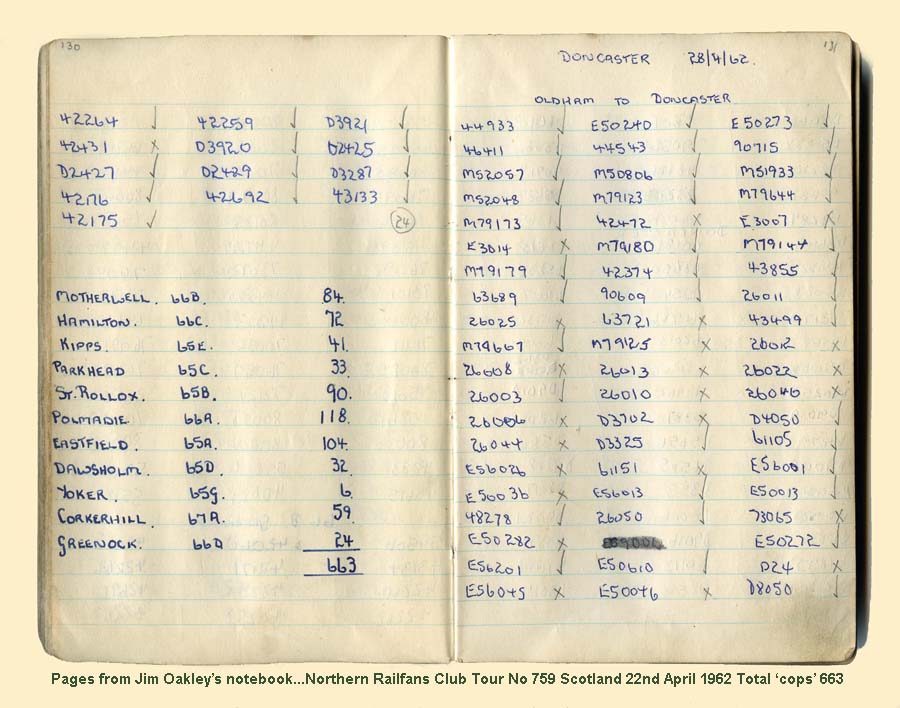 130
42264 ✓ 42259 ✓ D3921 ✓
42431 x D3920 ✓ D2425 ✓
D2427 ✓ D2429 ✓ D3287 ✓
42176 ✓ 42692 ✓ 43133 ✓
42175 ✓ 24
MOTHERWELL. 66B. 84.
HAMILTON. 66C. 72
KIPPS. 65E. 41.
PARKHEAD 65C. 33.
ST. ROLLOX. 65B. 90.
POLMADIE. 66A. 118.
EASTFIELD. 65A. 104.
DAWSHOLM. 65D. 32.
YOKER. 65G. 6.
CORKERHILL. 67A. 59.
GREENOCK. 66D 24
663
131
DONCASTER 28/4/62.
OLDHAM TO DONCASTER
44933 ✓ E50240 ✓ E50273 ✓
46411 ✓ 44543 ✓ 90715 ✓
M52057 ✓ M50806 ✓ M51933 ✓
M52048 ✓ M79123 ✓ M79644 ✓
M79173 ✓ 42472 x E3007 x
E3014 x M79180 ✓ M79144 ✓
M79179 ✓ 42374 ✓ 43855 ✓
63689 ✓ 90609 ✓ 26011 ✓
26025 x 63721 x 43499 ✓
M79667 ✓ M79125 x 26012 x
26008 x 26013 x 26022 x
26003 ✓ 26010 ✓ 26046 x
26006 x D3702 x D4050 ✓
26044 x D3325 ✓ 61105 ✓
E56026 x 61151 x E56001 ✓
E50036 x E56013 ✓ E50013 ✓
48278 ✓ 26050 ✓ 73065 x
E50282 x E50272 ✓
E56201 ✓ E50610 ✓ D24 x
E56045 x E50046 x D8050 ✓
Pages from Jim Oakley's notebook...Northern Railfans Club Tour No 759 Scotland 22nd April 1962 Total 'cops' 663